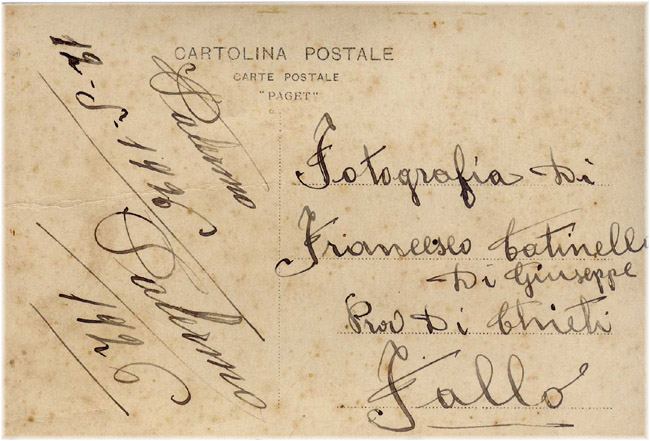 CARTOLINA POSTALE
CARTE POSTALE
"PAGET"
Palermo
12-5-1926
Palermo
1926
Fotografia Di
Francesco Catinelli
Di Giuseppe
Prov Di Chieti
Fallo